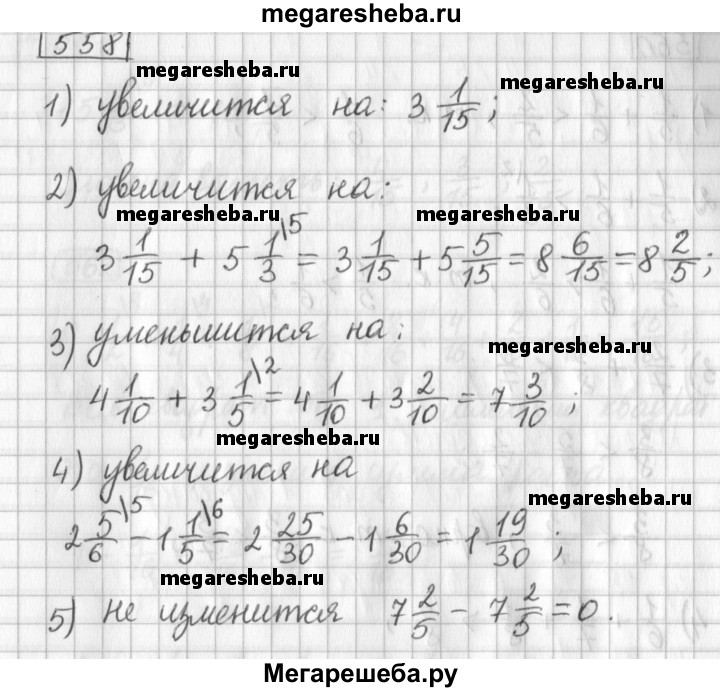 megaresheba.ru
558
megaresheba.ru
megaresheba.ru
1) увеличится на: 3 1/15;
2) увеличится на:
megaresheba.ru megaresheba.ru
3 1/15 + 5 1/3\5 = 3 1/15 + 5 5/15 = 8 6/15 = 8 2/5;
3) уменьшится на:
megaresheba.ru
4 1/10 + 3 1/5\2 = 4 1/10 + 3 2/10 = 7 3/10;
megaresheba.ru
4) увеличится на
megaresheba.ru
2 5/6\5 − 1 1/5\6 = 2 25/30 − 1 6/30 = 1 19/30;
megaresheba.ru
5) не изменится 7 2/5 − 7 2/5 = 0.
Мегарешеба.ру